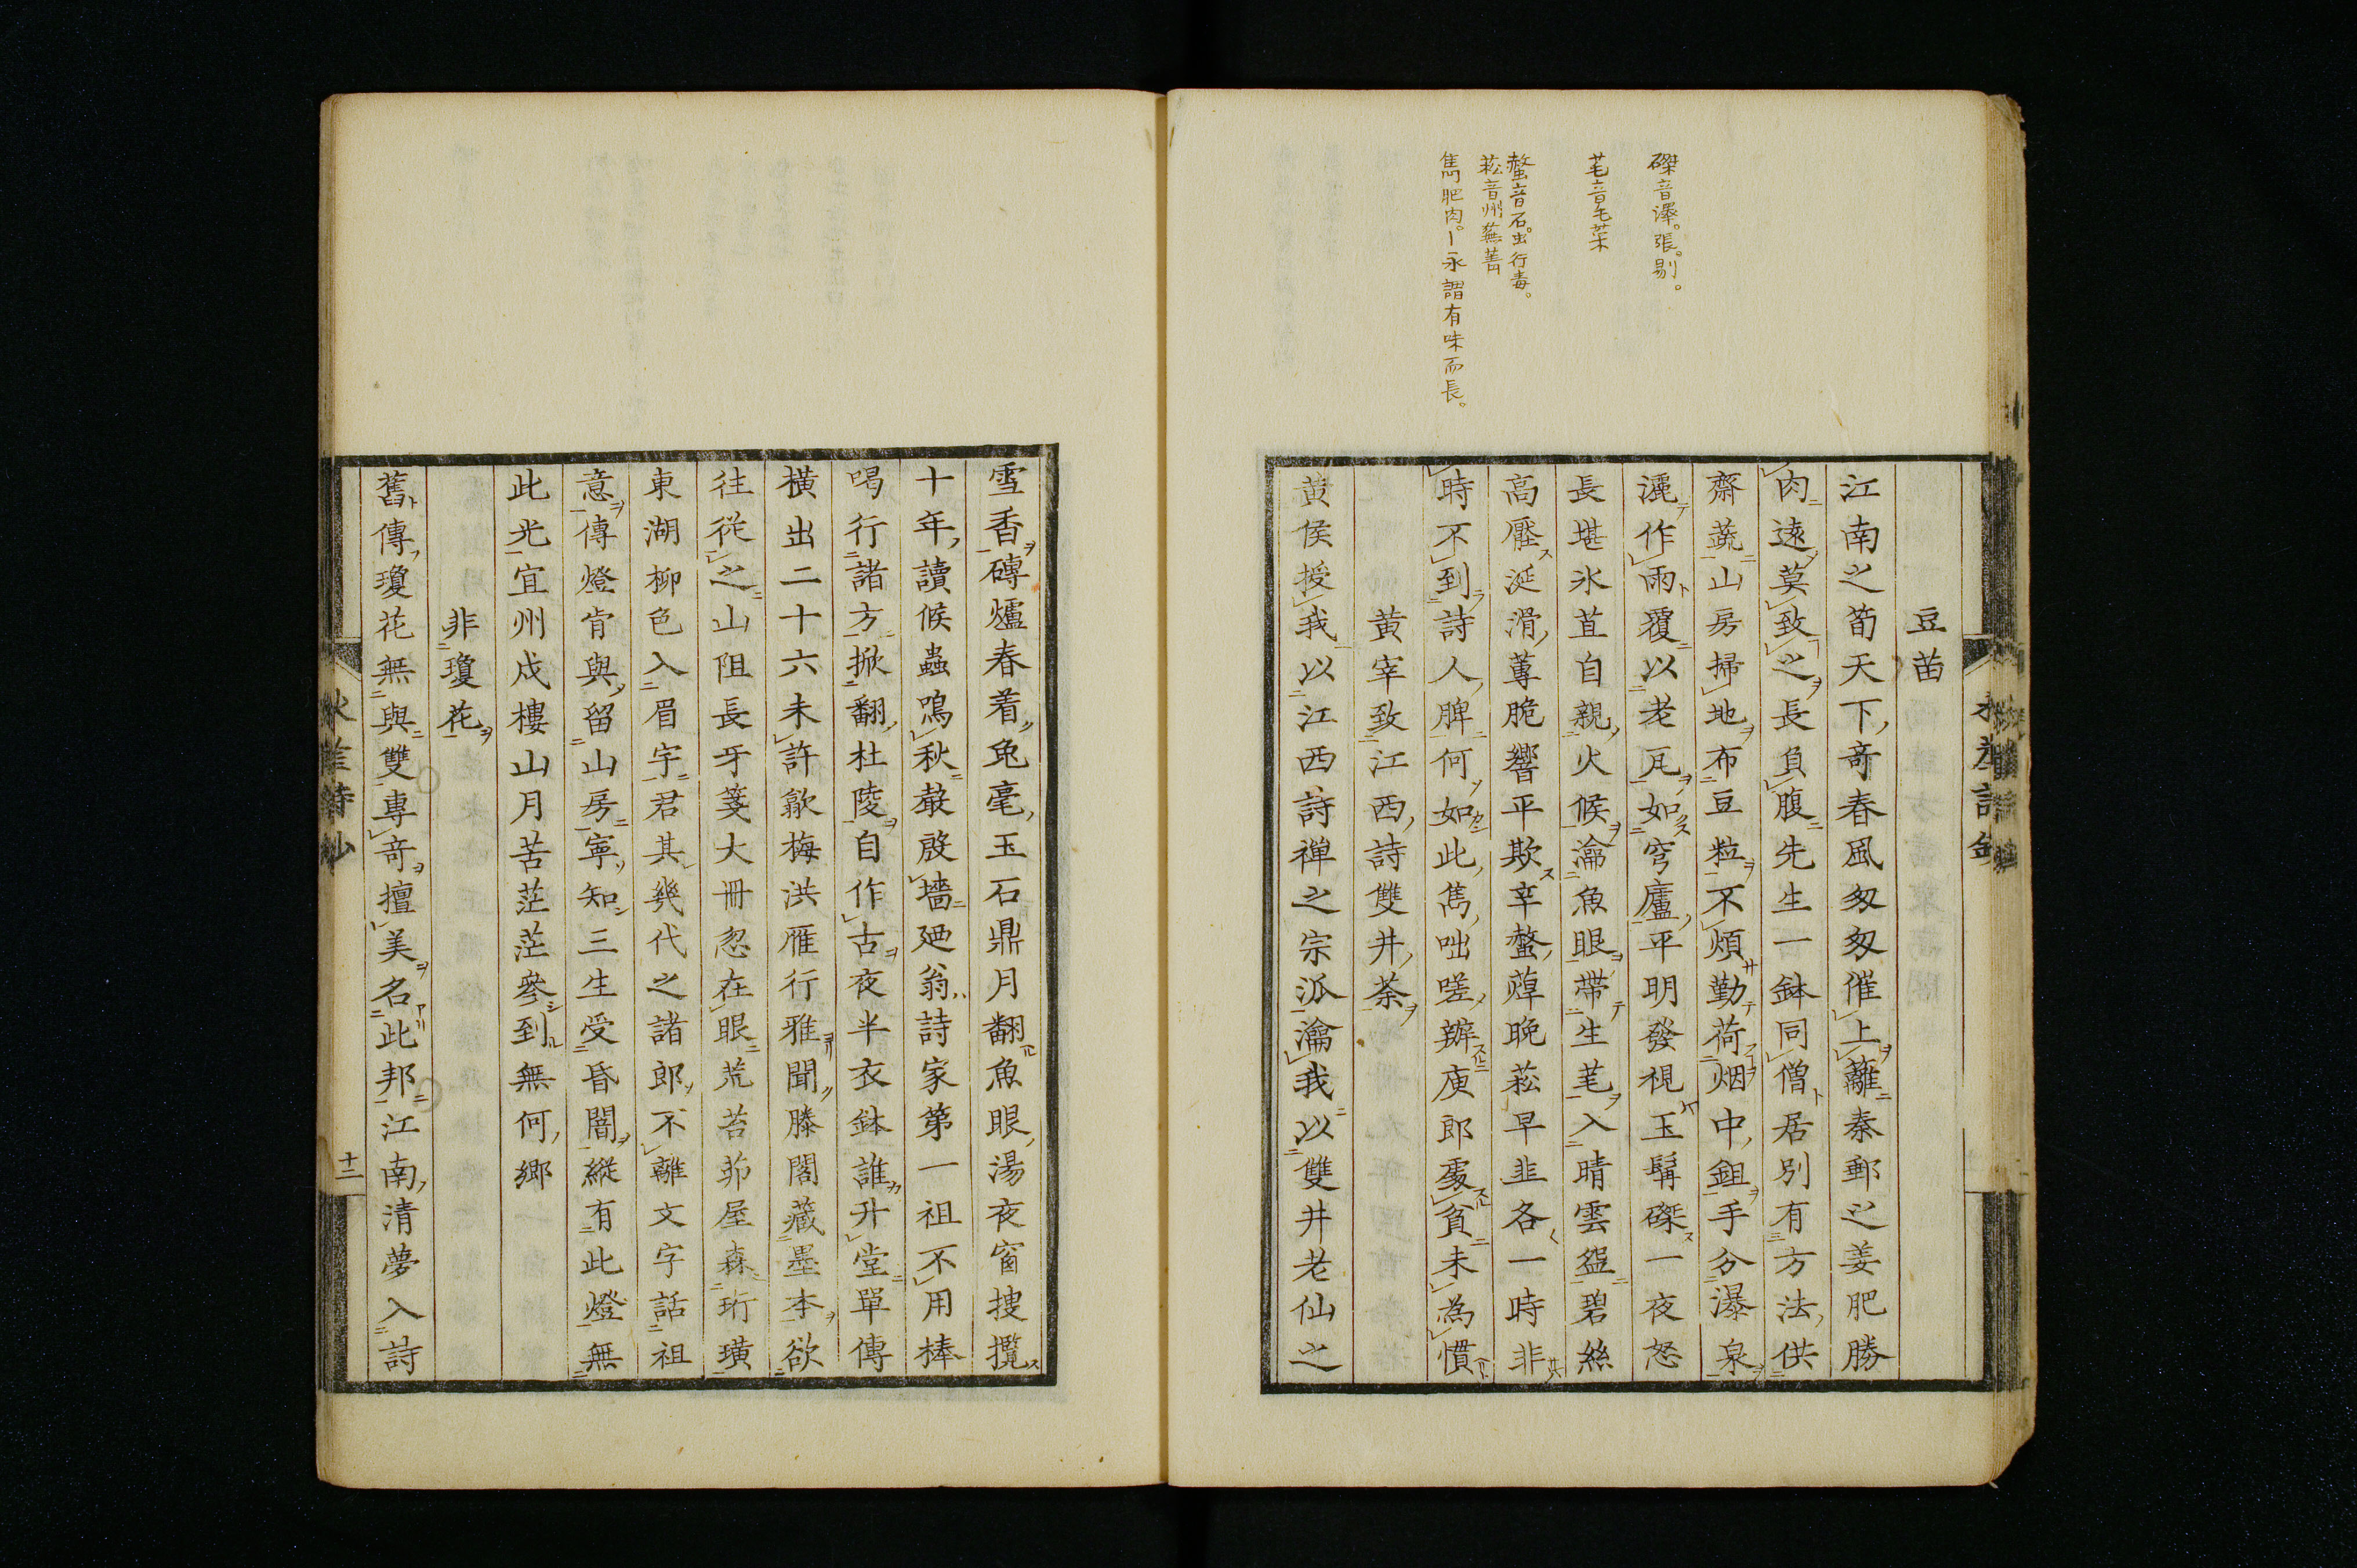 磔音澤。張。剔。
芼音毛菜
螫音石。虫行毒。
菘音㣎蕪菁
雋肥肉。｜永謂有味而長。
豆苗
江南之筍天下奇春風匆匆催上籬秦郵之姜肥勝
肉遠莫致之長負腹先生一鉢同僧居別有方法供
齋蔬山房掃地布豆粒不煩勤荷烟中鉏手分瀑泉
灑作雨覆以老瓦如穹廬平明發視玉髯磔一夜怒
長堪氷苴自親火候瀹魚眼帶生芼入晴雲盌碧絲
高壓涎滑蓴脆響平欺辛螫蔊晚菘早韭各一時非
時不到詩人脾何如此雋咄嗟辦庾郎處貧未為慣
黃宰致江西詩雙井茶
黃侯授我以江西詩禅之宗派瀹我以雙井老仙之
雪香磚爐春着兔毫玉石鼎月翻魚眼湯夜窗搜攬
十年讀候蟲鳴秋嚴啟墻廼翁詩家第一祖不用棒
喝行諸方掀翻杜陵自作古夜半衣鉢誰升堂單傳
橫出二十六未許歙梅洪雁行雅聞滕閣藏墨本欲
往從之山阻長牙箋大冊忽在眼荒苔茆屋森珩璜
東湖柳色入眉宇君其幾代之諸郎不離文字話祖
意傳燈肯與留山房寧知三生受昏闇縱有此燈無
此光宜州戍樓山月苦茫茫參到無何鄉
非瓊花
舊傳瓊花無與雙專奇擅美名此邦江南清夢入詩
秋崖詩鈔
十二